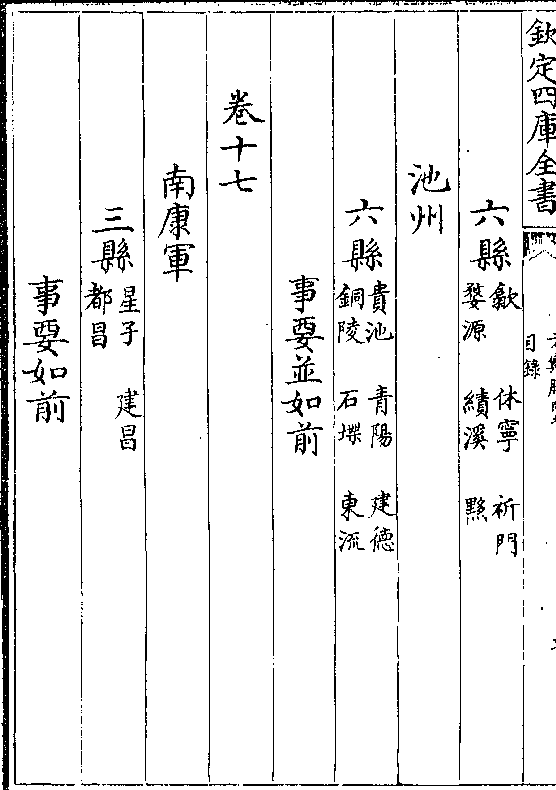 欽定四庫全書
目錄
六縣 歙 休寧 祈門
婺源 績溪 黟
池州
六縣 貴池 青陽 建德
銅陵 石埭 東流
事要並如前
卷十七
南康軍
三縣 星子 建昌
都昌
事要如前